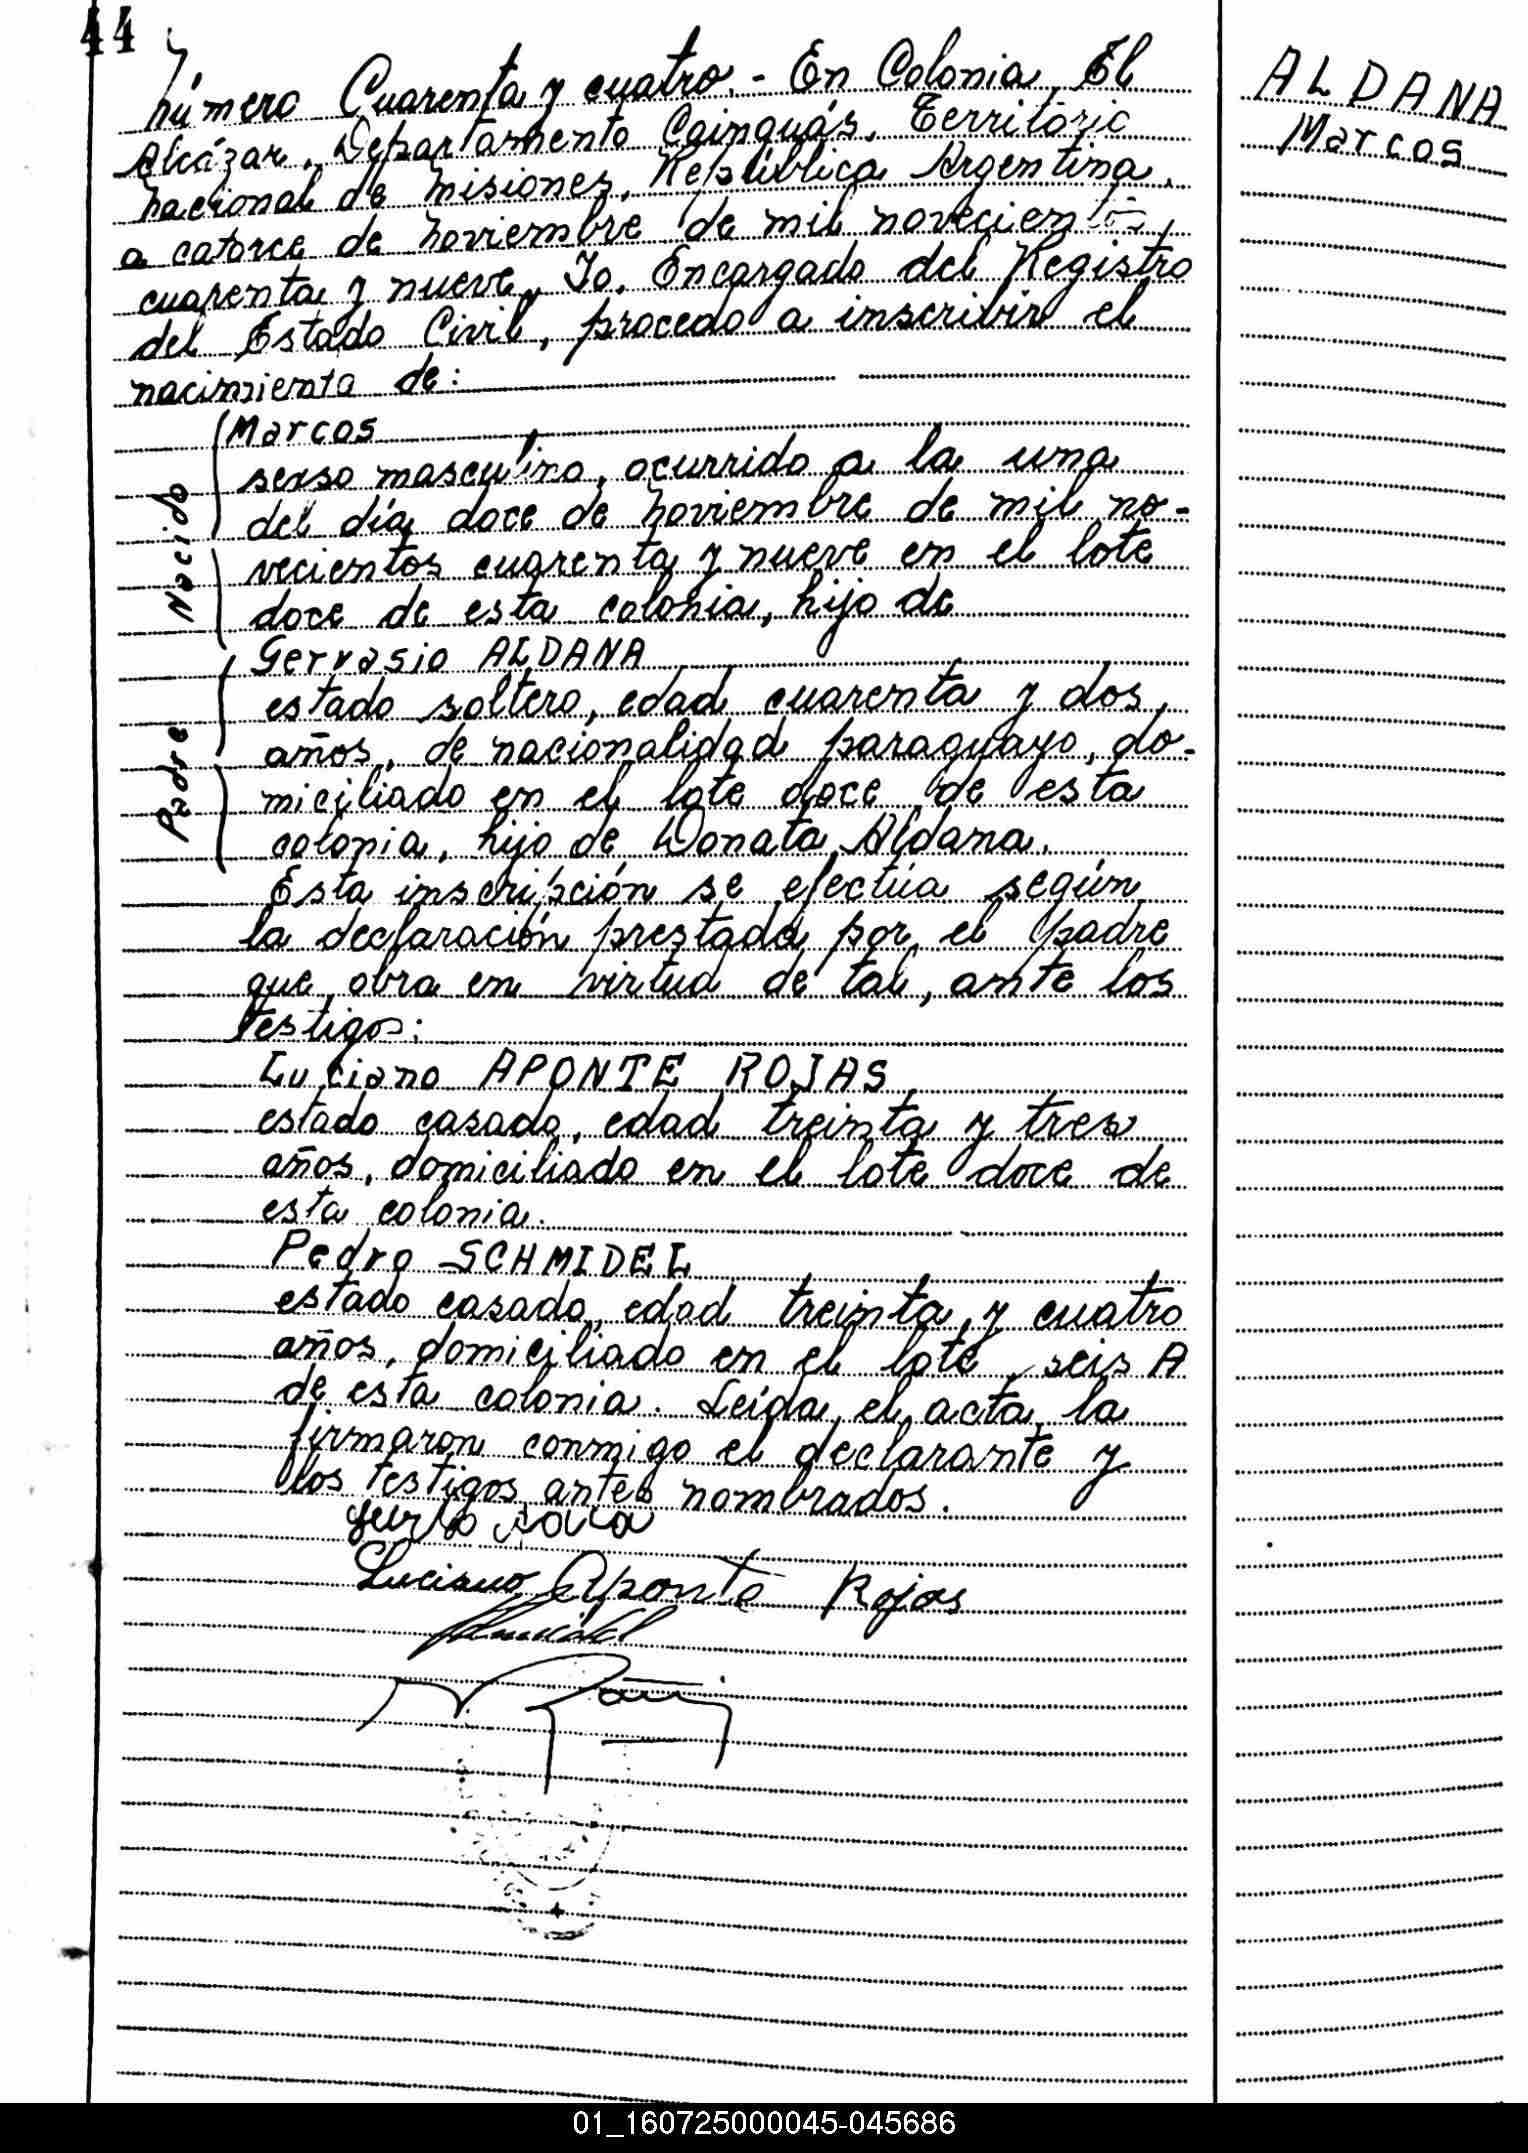 44
Número Cuarenta y cuatro.- En Colonia El
Alcázar, Departamento Cainguás, Territorio
nacional de Misiones, República Argentina,
a catorce de noviembre de mil novecientos
cuarenta y nueve, Yo, Encargado del Registro
del Estado Civil, procedo a inscribir el
nacimiento de:
Marcos
sexso masculino, ocurrido a la una
del día doce de noviembre de mil no-
vecientos cuarenta y nueve en el lote
doce de esta colonia, hijo de
Nacido
Gervasio ALDANA
estado soltero, edad cuarenta y dos
años, de nacionalidad paraguayo, do-
miciliado en el lote doce de esta
colonia, hijo de Donata Aldana.
Padre
Esta inscripción se efectúa según
la declaración prestada por el padre
que obra en virtud de tal, ante los
testigos:
Luciano APONTE ROJAS
estado casado, edad treinta y tres
años, domiciliado en el lote doce de
esta colonia.
Pedro SCHMIDEL
estado casado, edad treinta y cuatro
años, domiciliado en el lote seis A
de esta colonia. Leída el acta la
firmaron conmigo el declarante y
los testigos antes nombrados.
Luciano Aponte Rojas
Schmidel
ALDANA
Marcos
01_160725000045-045686